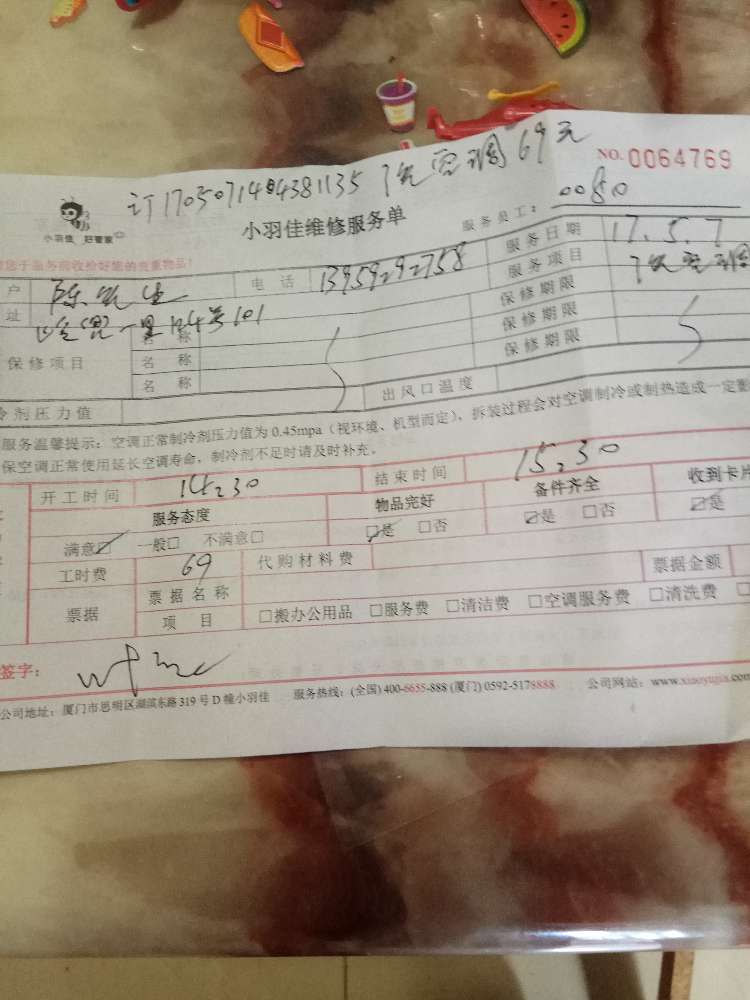 订1705071404381135 修空调69元
NO. 0064769
小羽佳 好管家
小羽佳维修服务单
服务员工: 0080
户 陈先生 电话 13959292758 服务日期 17.5.7
址 一里134号101 服务项目 修空调
保修项目 名称 保修期限
名称 保修期限
名称 保修期限
冷剂压力值 出风口温度
服务温馨提示: 空调正常制冷剂压力值为 0.45mpa (视环境、机型而定), 拆装过程会对空调制冷或制热造成一定影
保空调正常使用延长空调寿命, 制冷剂不足时请及时补充。
开工时间 14:30 结束时间 15:30
服务态度 物品完好 备件齐全 收到卡片
满意☑ 一般□ 不满意□ ☑是 □否 ☑是 □否 ☑是
工时费 69 代购材料费
票据 票据名称 票据金额
项目 □搬办公用品 □服务费 □清洁费 □空调服务费 □清洗费
签字:
公司地址: 厦门市思明区湖滨东路319号D幢小羽佳 服务热线: (全国) 400-6655-888 (厦门) 0592-5178888 公司网站: www.xiaoyujia.com